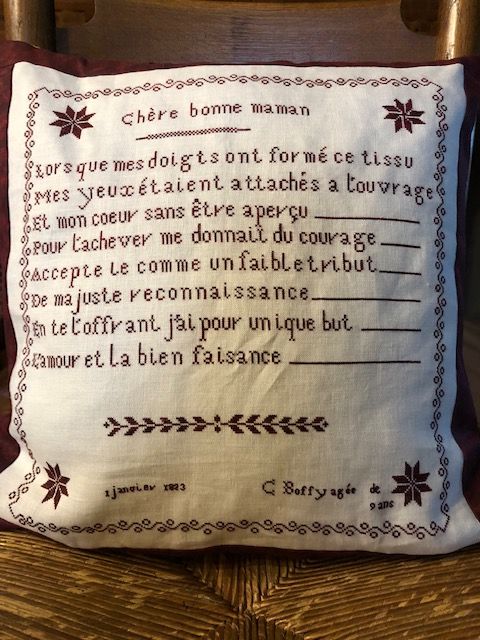 Chère bonne maman
Lorsque mes doigts ont formé ce tissu
Mes yeux étaient attachés a l'ouvrage
Et mon coeur sans être aperçu
Pour l'achever me donnait du courage
Accepte le comme un faible tribut
De ma juste reconnaissance
En te l'offrant j'ai pour unique but
L'amour et la bien faisance
1 janvier 1823 C Boffy agée de
9 ans